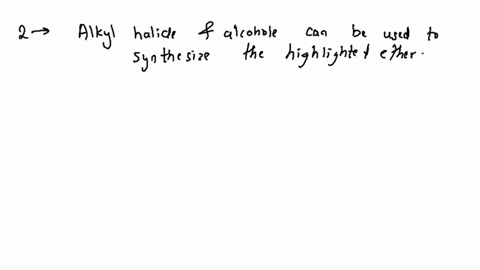 2→ Alkyl halide & alcohole can be used to
synthesize the highlighted ether.